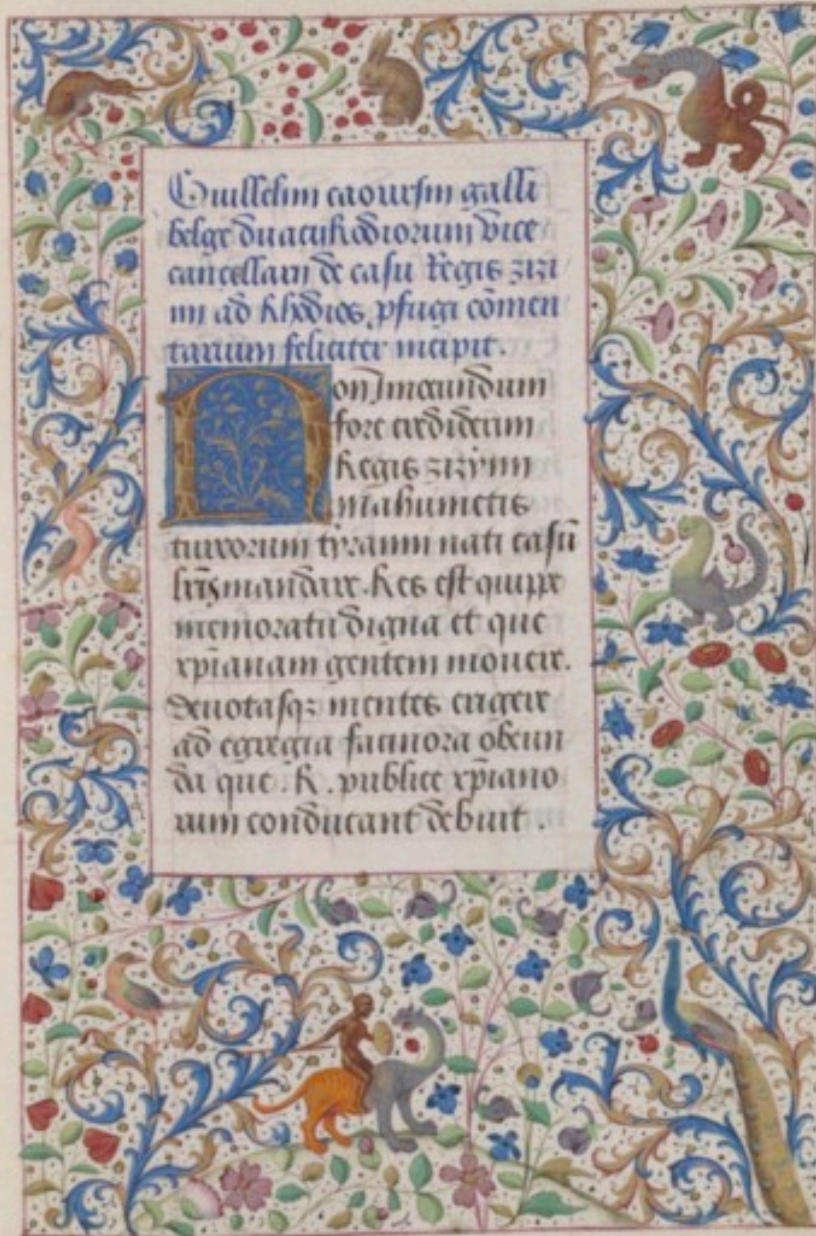 Guillelmi caoursin galli
belge duaci Rhodiorum vice
cancellarii de casu Regis zizi
mi ad Rhodios pfugi cōmen
tarium feliciter incipit.
Non Iniocundum
fore crediderim
Regis zizymi
mahumetis
turcorum tyranni nati casū
lr̄is mandare. Res est quippe
memoratu digna et que
xp̄ianam gentem mouere.
deuotasqꝫ mentes erigere
ad egregia facinora obeun
da que .R. publice xp̄iano
rum conducant debuit.